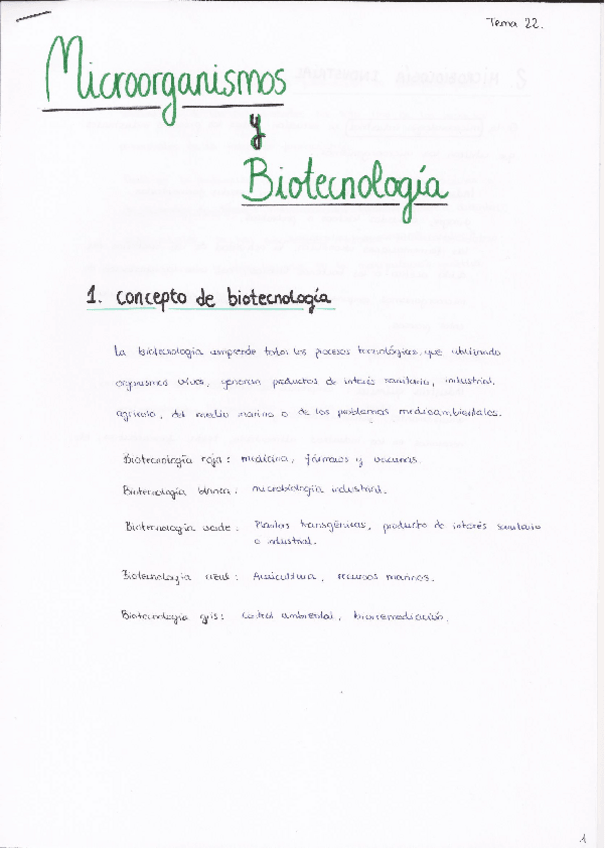 Tema 22.
Microorganismos
y
Biotecnología
1. Concepto de biotecnología
La biotecnología comprende todos los procesos tecnológicos que utilizando
organismos vivos, generan productos de interés sanitario, industrial,
agrícola, del medio marino o de los problemas medioambientales.
Biotecnología roja: medicina, fármacos y vacunas.
Biotecnología blanca: microbiología industrial.
Biotecnología verde: Plantas transgénicas, producto de interés sanitario
o industrial.
Biotecnología azul: Acuicultura, recursos marinos.
Biotecnología gris: Control ambiental, biorremediación.
1